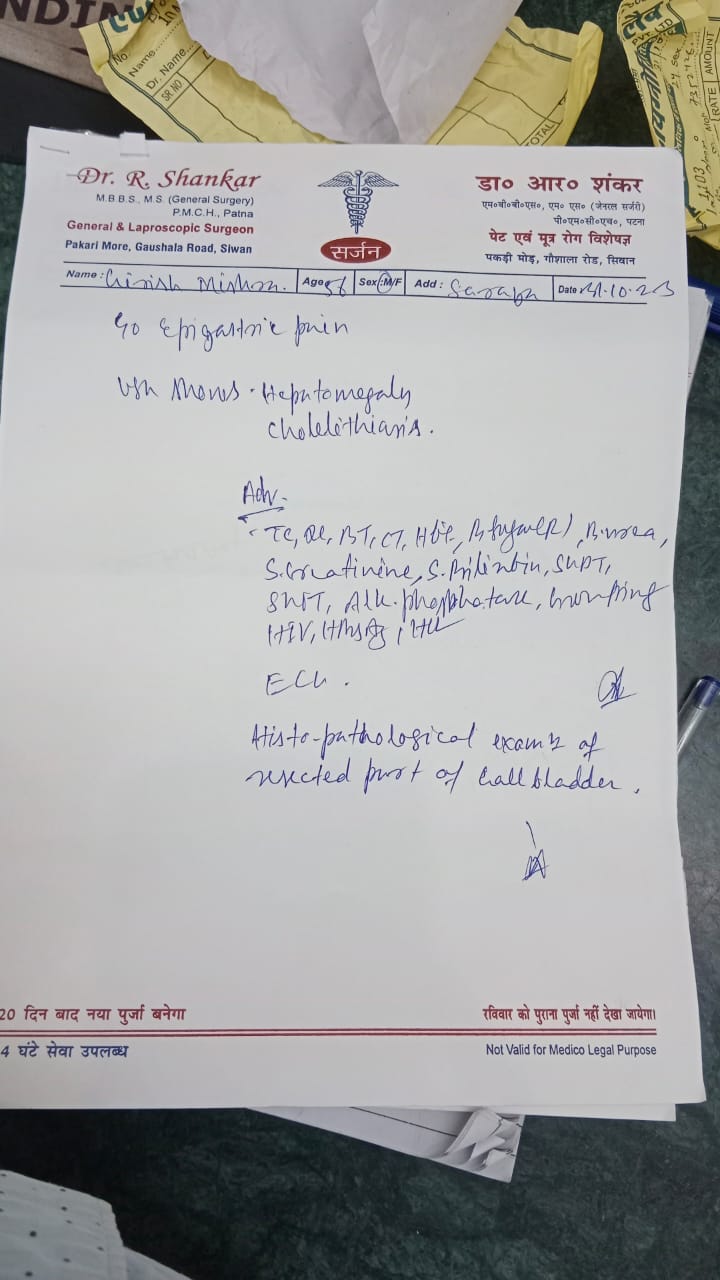 No.
Name
Dr. Name
SR NO
TOTAL
RATE
AMOUNT
Dr. R. Shankar
M.B.B.S., M.S. (General Surgery)
P.M.C.H., Patna
General & Laproscopic Surgeon
Pakari More, Gaushala Road, Siwan
सर्जन
डा० आर० शंकर
एम०बी०बी०एस०, एम० एस० (जेनरल सर्जरी)
पी०एम०सी०एच०, पटना
पेट एवं मूत्र रोग विशेषज्ञ
पकड़ी मोड़, गौशाला रोड, सिवान
Name: Girish Mishra. Age 56 Sex: M/F Add: Date 31.10.23
C/o Epigastric pain
USG Shows - Hepatomegaly
Cholelithiasis.
Adv.
TC, DC, BT, CT, Hb%, B. Sugar (R), B. urea,
S. Creatinine, S. Bilirubin, SGPT,
SGOT, Alk. phosphatase, Grouping
HIV, HBsAg, HCV
ECG.
Histo-pathological exam of
resected part of Gall bladder.
20 दिन बाद नया पुर्जा बनेगा
रविवार को पुराना पुर्जा नहीं देखा जायेगा।
4 घंटे सेवा उपलब्ध
Not Valid for Medico Legal Purpose